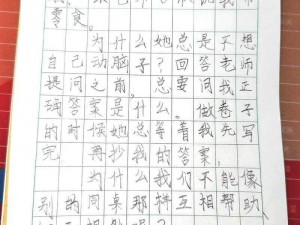 零食。
为什么她总是不想
自己动脑子？回答老师
提问之前，总要问我正
确答案是什么。做卷子
的时候她总等着我先写
完，再抄我的答案。
为什么我们不能像
别的同桌那样互相帮助、